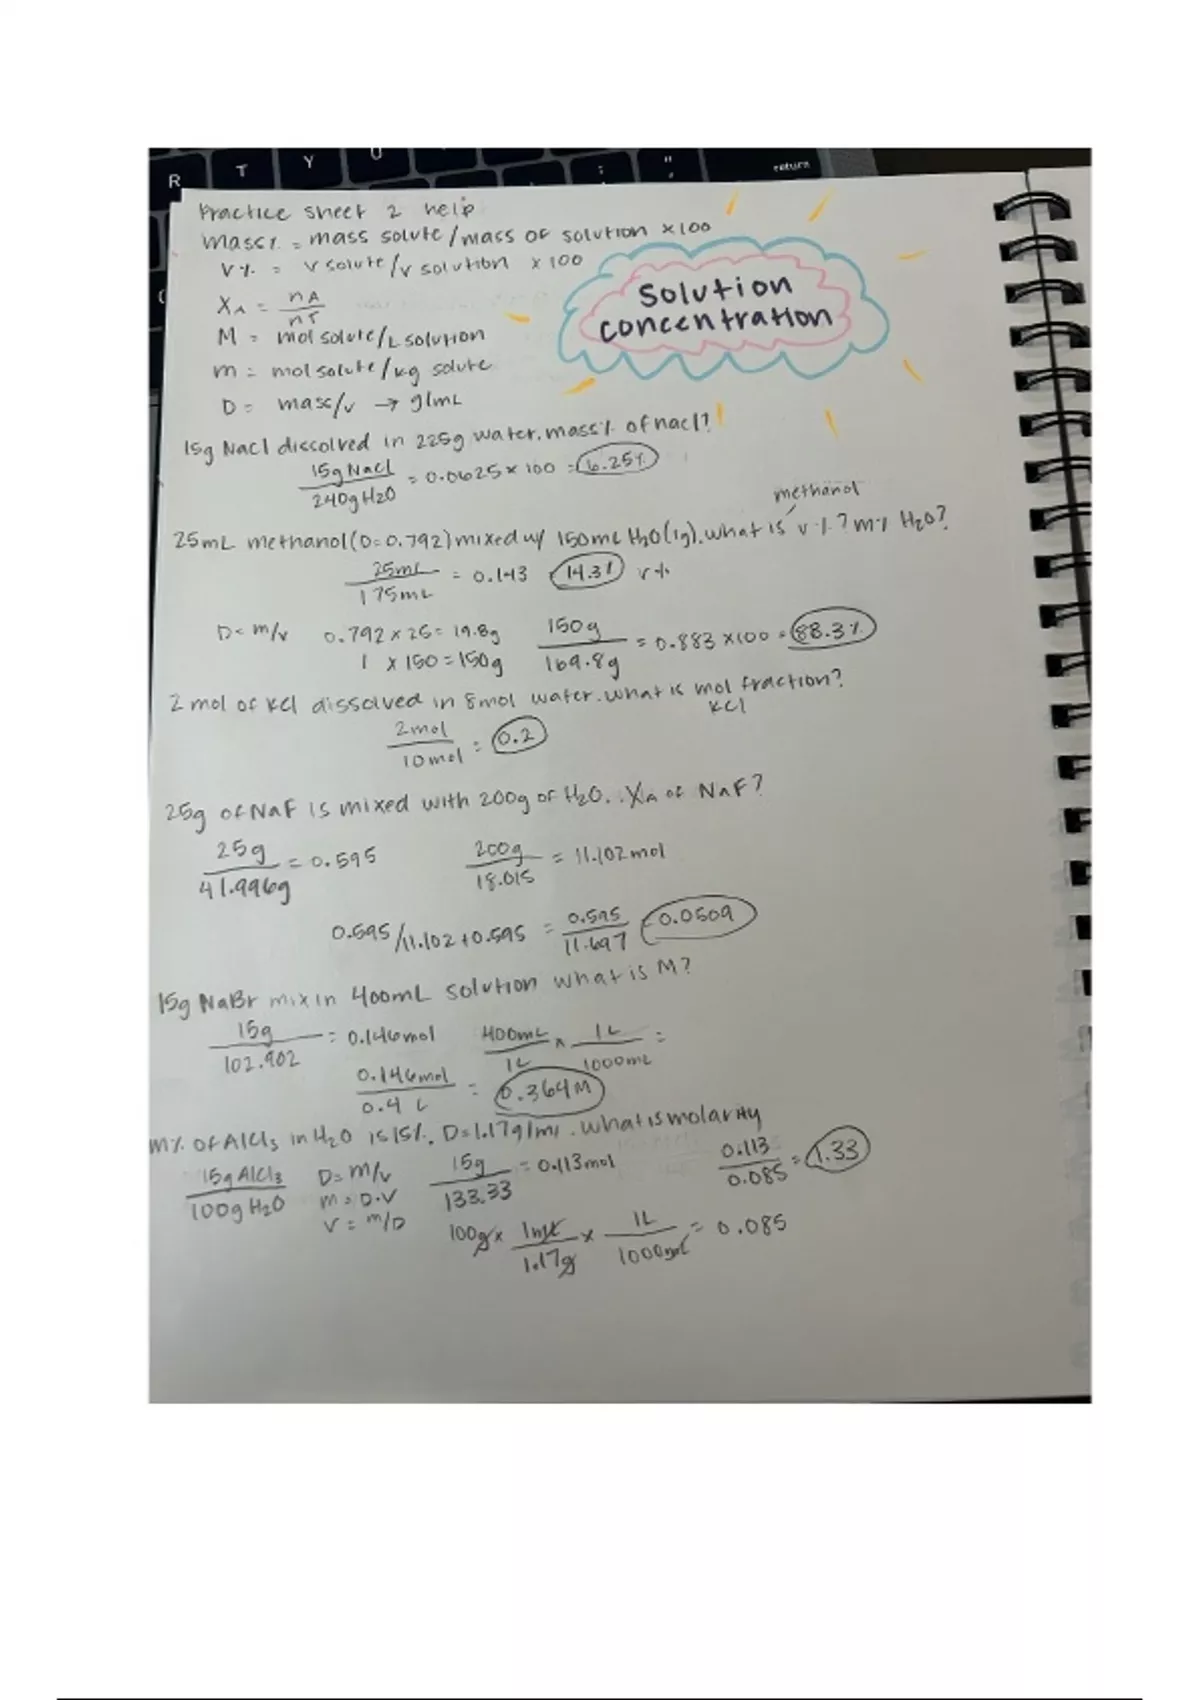 R T Y U : ; " ' return
Practice sheet 2 help
mass% = mass solute/mass of solution x100
V% = v solute/v solution x 100
Solution
concentration
XA = nA
nT
M = mol solute/L solution
m = mol solute/kg solute
D = mass/v → g/mL
15g NaCl dissolved in 225g water. mass% of nacl?
15g NaCl
240g H2O
= 0.0625 x 100 = 6.25%
methanol
25mL methanol (D=0.792) mixed w/ 150mL H2O (1g). what is v%? m% H2O?
25mL
175mL
= 0.143 14.3% v%
D=m/v 0.792 x 25 = 19.8g
1 x 150 = 150g
150g
169.8g
= 0.883 x100 = 88.3%
2 mol of KCl dissolved in 8mol water. what is mol fraction?
KCl
2mol
10mol
= 0.2
25g of NaF is mixed with 200g of H2O. XA of NaF?
25g
41.996g
= 0.595
200g
18.015
= 11.102mol
0.595/11.102+0.595 = 0.595
11.697
0.0509
15g NaBr mix in 400mL solution what is M?
15g
102.902
= 0.146mol
400mL x 1L =
1L 1000mL
0.146mol
0.4 L
= 0.364M
m% of AlCl3 in H2O is 15%. D=1.17g/mL. what is molarity
15g AlCl3
100g H2O
D=m/v
m=D.V
V=m/D
15g
133.33
= 0.113mol
0.113
0.085
= 1.33
100g x 1mL x 1L = 0.085
1.17g 1000mL